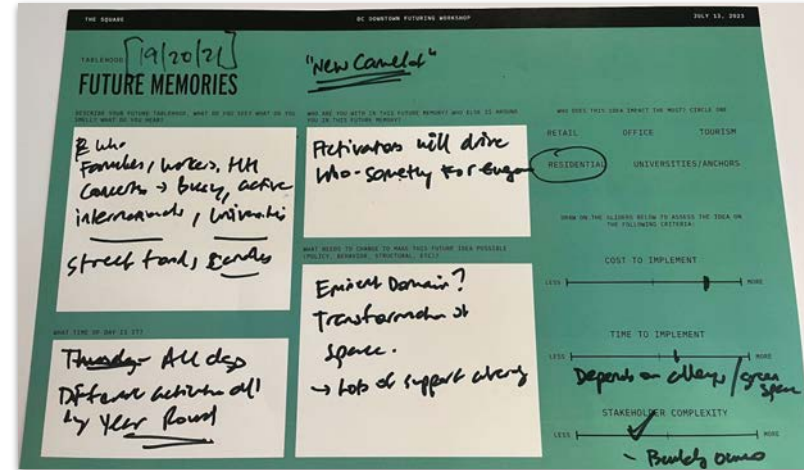 THE SQUARE
DC DOWNTOWN FUTURING WORKSHOP
JULY 13, 2023
TABLEHOOD [19/20/21]
FUTURE MEMORIES
"New Camelot"
DESCRIBE YOUR FUTURE TABLEHOOD. WHAT DO YOU SEE? WHAT DO YOU
SMELL? WHAT DO YOU HEAR?
Who
Families, workers, HH
Concerts → Busy, active
internationals, Universities
street food,
WHAT TIME OF DAY IS IT?
All day
Different
by Year Round
WHO ARE YOU WITH IN THIS FUTURE MEMORY? WHO ELSE IS AROUND
YOU IN THIS FUTURE MEMORY?
Activators will drive
who - something for
WHAT NEEDS TO CHANGE TO MAKE THIS FUTURE IDEA POSSIBLE
(POLICY, BEHAVIOR, STRUCTURAL, ETC)?
Eminent Domain?
Transformation of
space.
→ Lots of support already
WHO DOES THIS IDEA IMPACT THE MOST? CIRCLE ONE
RETAIL OFFICE TOURISM
RESIDENTIAL UNIVERSITIES/ANCHORS
DRAW ON THE SLIDERS BELOW TO ASSESS THE IDEA ON
THE FOLLOWING CRITERIA:
COST TO IMPLEMENT
LESS MORE
TIME TO IMPLEMENT
LESS MORE
Depends on alleys/green
space
STAKEHOLDER COMPLEXITY
LESS MORE
- Building owners